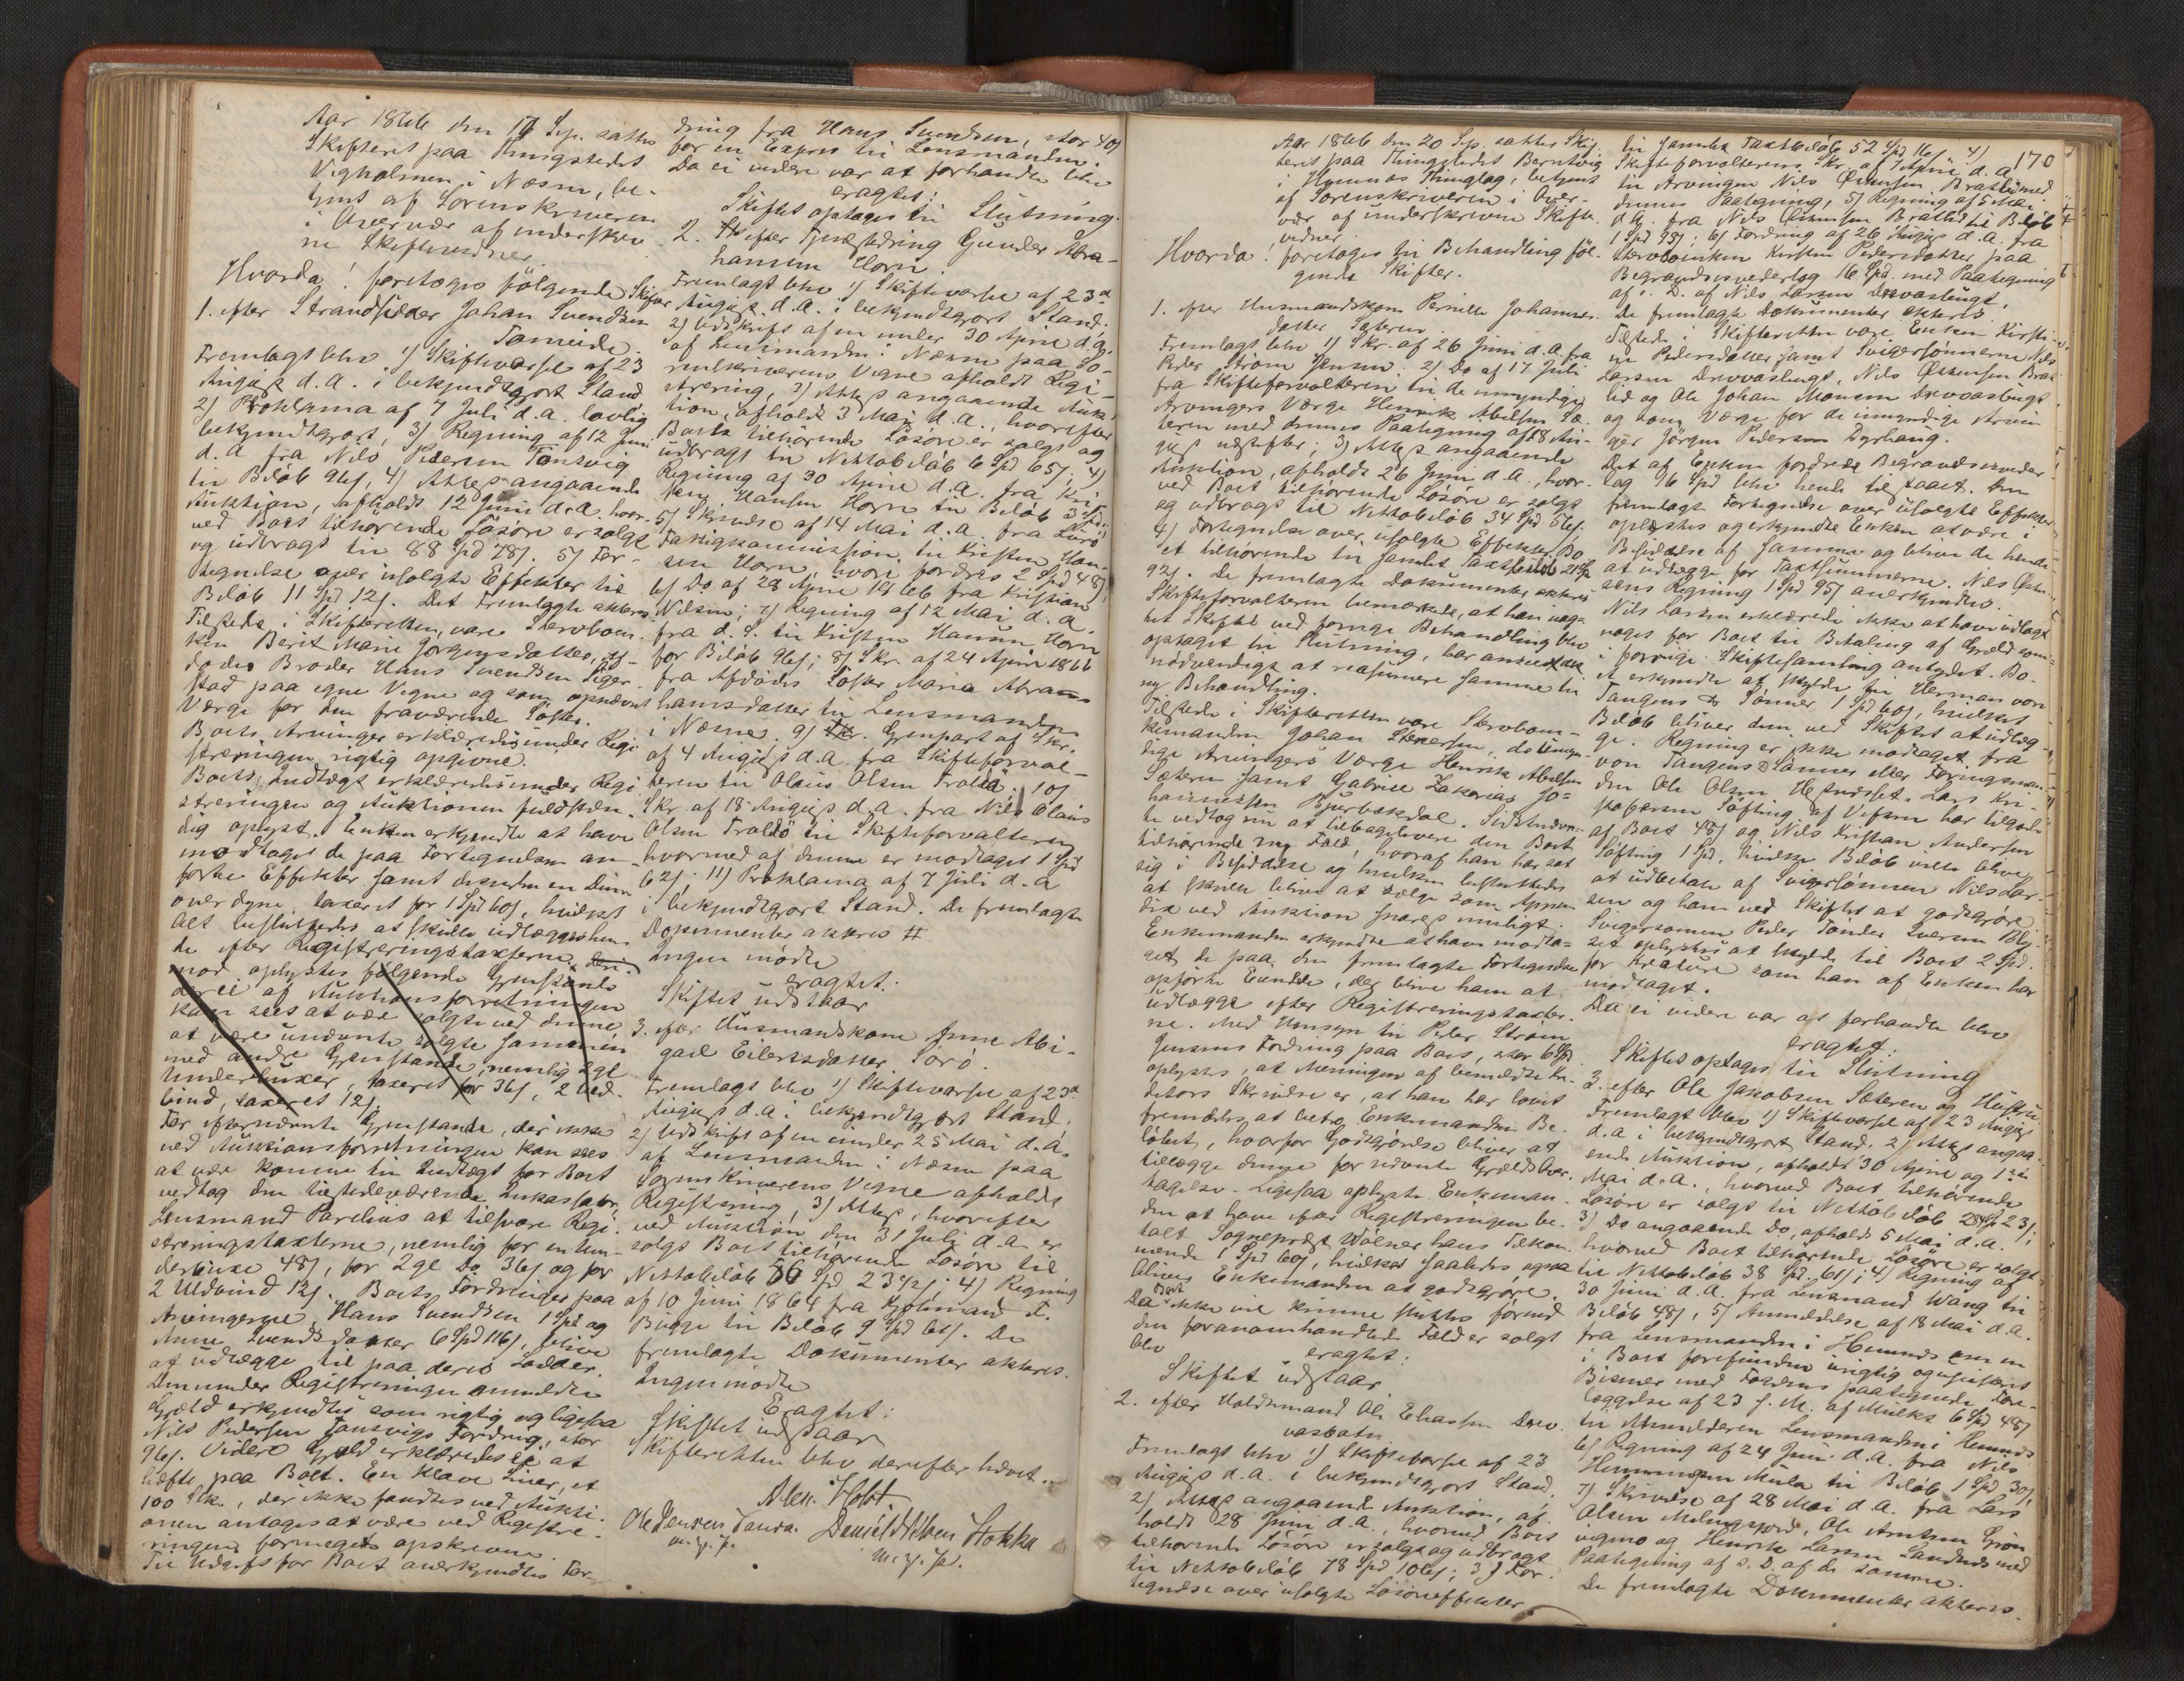 Aar 1866 den 17 Sep. sattes
Skifteret paa Thingstedet
Vigholmen i Næsne, be-
tjent af Sorenskriveren
i Overvær af underskrev
ne Skiftevidner.
Hvorda! foretoges følgende Skifter
1. efter Strandsidder Johan Svendsen
Fremlagt blev 1) Skiftevarsel af 23
August d.A. i bekjendtgjort Stand
2) Proklama af 7 Juli d.A. lovlig
bekjendtgjort, 3) Regning af 12 Juni
d.A. fra Nils Pedersen Tonsvig
til Beløb 96ſ, 4) Attest angaaende
Auktion, afholdt 12 Juni d.A. hvor-
ved Boets tilhørende Løsøre er solgt
og udbragt til 88 Spd 78ſ. 5) For-
tegnelse over usolgte Effekter til
Beløb 11 Spd 12ſ. Det Fremlagte akteres
Tilstede i Skifteretten vare Stervboen-
ken Berit Marie Jørgensdatter, Af-
dødes Broder Hans Svendsen
paa egne Vegne og som opnævnt
Værge for den fraværende Søster.
Boets Arvinger erklæredes under Regi
streringen rigtig opgivne.
Boets Indtægt erklæredes under Regi
streringen og Auktionen fuldstæn-
dig oplyst. Enken erkjendte at have
modtaget de paa Fortegnelsen an-
førte Effekter samt desuden en Dun
overdyne, taxeret for 1 Spd 60ſ, hvilket
Alt besluttedes at skulle udlægges hen-
de efter Registreringstaxterne, deri-
mod oplystes følgende Gjenstande
der ei af Auktionsforretningen
kan sees at være solgte ved denne
at være undernte solgte sammen
med andre Gjenstande, nemlig 2gl
Underbuxer, taxeret for 36ſ, 2 Uld-
bind, taxeret 12ſ.
For efternævnte Gjenstande, der ikke
ved Auktionsforretningen kan sees
at være komne til Indtægt for Boet
vedtog den tilstedeværende Inkassator,
Lensmand Parelius at tilsvare Regi-
streringstaxterne, nemlig for en Un-
derbuxe 48ſ, for 2 gl Do 36ſ og for
2 Uldbind 12ſ. Boets Fordringer paa
Arvingerne Hans Svendsen 1 Spd og
Anne Svendsdatter 6 Spd 116ſ, blive
at udlægge til paa deres Lodder.
Den under Registreringen anmeldte
Gjæld erkjendtes som rigtig og ligesaa
Nils Pedersen Tonsvigs Fordring, stor
96ſ. Videre Gjæld erklæredes ei at
hæfte paa Boet. En Klave Liner, et
100 Stk., der ikke fandtes ved Aukti-
onen antages at være ved Registre-
ringen formeget opskreven.
Til Udgift for Boet anerkjendtes For-
dring fra Hans Svendsen, stor 40ſ
for en Expres til Lensmanden.
Da ei videre var at forhandle blev
eragtet:
Skiftet optages til Slutning.
2. Skifter
Gunder Abra-
hamsen Horn.
Fremlagt blev 1) Skiftevarsel af 23d
August d.A. i bekjendtgjort Stand.
2) Udskrift af en under 30 April d.A.
af Lensmanden i Næsne paa So-
renskriverens Vegne afholdt Regi-
strering, 3) Attest angaaende Auk-
tion, afholdt 3 Mai d.A., hvorefter
Boets tilhørende Løsøre er solgt og
udbragt til Nettobeløb 6 Spd 65ſ; 4)
Regning af 30 April d.A. fra Kri-
sten Hansen Horn til Beløb 3 Spd;
5) Skrivelse af 14 Mai d.A. fra Lurø
Fattigkommission til Kristen Han-
sen Horn, hvori fordres 2 Spd 48ſ;
6) Do af 28 April 1866 fra Kristian
Nilsen; 7) Regning af 12 Mai d.A.
fra d.S. til Kristen Hansen Horn
for Beløb 96ſ; 8) Skr. af 24 April 1866
fra Afdødes Søster Maria Abra
hamsdatter til Lensmanden
i Næsne. 9) Gjenpart af Skr.
af 4 August d.A. fra Skifteforval-
teren til Olaus Olsen Traldø; 10)
Skr. af 18 August d.A. fra Nils Olaus
Olsen Traldø til Skifteforvalteren
hvormed af denne er modtaget 1 Spd
62ſ; 11) Proklama af 7 Juli d.A.
i bekjendtgjort Stand. De fremlagte
Dokumenter akteres #
Ingen mødte
eragtet:
Skiftet udstaar
3. efter Husmandskone Anne Abi-
gael Eilertsdatter Sorø.
Fremlagt blev 1) Skiftevarsel af 23d
August d.A. i bekjendtgjort Stand,
2) Udskrift af en under 25 Mai d.A.
af Lensmanden i Næsne paa
Sorenskriverens Vegne afholdt
Registrering, 3) Attest, hvorefter
ved Auktion den 31 Juli d.A. er
solgt Boet tilhørende Løsøre til
Nettobeløb 56 Spd 23½ſ; 4) Regning
af 10 Juni 1864 fra Kjøbmand F.
Bugge til Beløb 9 Spd 61ſ. De
fremlagte Dokumenter akteres.
Ingen mødte
Eragtet:
Skiftet udstaar
Skifteretten blev derefter hævet.
Alex. Holst
Ole Jensen
Daniel
Hokka
m.p.P.
170
Aar 1866 den 20 Sep. sattes Skif-
teret paa Thingstedet Berntvig
i Hemnæs Thinglag, betjent
af Sorenskriveren i Over-
vær af underskrevne Skifte-
vidner.
Hvorda! foretoges til Behandling føl-
gende Skifter.
1. efter Husmandskone Pernille Johannes-
datter Sæteren
Fremlagt blev 1) Skr. af 26 Juni d.A. fra
Peder Strøm Jensen. 2) Do af 17 Juli
fra Skifteforvalteren til de umyndige
Arvingers Værge Henrik Abelsen Sæ-
teren med dennes Paategning af 18 Au-
gust næstefter; 3) Attest angaaende
Auktion, afholdt 26 Juni d.A., hvor-
ved Boet tilhørende Løsøre er solgt
og udbragt til Nettobeløb 34 Spd 56ſ.
4) Fortegnelse over usolgte Effekter Bo-
et tilhørende til samlet Taxtbeløb 21 Spd
92ſ. De fremlagte Dokumenter akteres
Skifteforvalteren bemærkede, at han uag-
tet Skiftet ved forrige Behandling blev
optaget til Slutning, har anseet det
nødvendigt at reassumere samme til
ny Behandling.
Tilstede i Skifteretten vare Stervboen-
kemanden Johan Steuersen, de umyn-
dige Arvingers Værge Henrik Abelsen
Sæteren samt Gabriel Zakarias Jo-
hannessen Bjurbækdal. Sidstnævn-
te vedtog at tilbagelevere den Boet
tilhørende Fæld, hvoraf han har sat
sig i Besiddelse og hvilken besluttedes
at skulle blive at sælge som Appen-
dix ved Auktion snarest muligt.
Enkemanden erkjendte at have modta-
get de paa den fremlagte Fortegnelse
opførte Effekter, der blive ham at
udlægge efter Registreringstaxter-
ne. Med Hensyn til Peder Strøm
Jensens Fordring paa Boet, stor 6 Spd
oplystes, at Meningen af bemeldte Kre-
ditors Skrivelse er, at han har lovet
fremdeles at betro Enkemanden Be-
løbet, hvorfor Godtgjørelse bliver at
tillægge denne for nævnte Gjældsover-
tagelse. Ligesaa oplyste Enkeman-
den at have efter Registreringen be-
talt Sogneprest Wolner hans Tilkom-
mende 1 Spd 60ſ, hvilket saaledes ogsaa
bliver Enkemanden at godtgjøre.
Da Boet ikke vil kunne sluttes forend
den foranomhandlede Fæld er solgt
blev eragtet:
Skiftet udstaar
2. efter Huldemand Ole Eliassen Drev-
vasbatn
Fremlagt blev 1) Skiftevarsel af 23
August d.A. i bekjendtgjort Stand,
2) Attest angaaende Auktion, af-
holdt 28 Juni d.A., hvorved Boet
tilhørende Løsøre er solgt og udbragt
til Nettobeløb 78 Spd 106ſ; 3) For-
tegnelse over usolgte Løsøreeffekter
til samlet Taxtbeløb 52 Spd 16ſ 4)
Skifteforvalterens Skr. af 7 April d.A.
til Arvingen Nils Østensen Bratlid med
dennes Paategning, 5) Regning af 5 Mai
d.A. fra Nils Østensen Bratlid til Beløb
1 Spd 95ſ; 6) Fordring af 26 August d.A. fra
Stervboenken Kirsten Pedersdatter paa
Begravelsesvederlag 16 Spd. med Paategning
af s. D. af Nils Larsen Drevvasbugt.
De fremlagte Dokumenter akteres
Tilstede i Skifteretten vare Enken Kirsti-
ne Pedersdatter samt Svigersønnerne Nils
Larsen Drevvasbugt, Nils Østensen Brat-
lid og Ole Johan Monsen Drevvasbugt
og som Værge for de umyndige Arvin-
ger Jørgen Pedersen Dyrhaug.
Det af Enken fordrede Begravelsesveder-
lag 16 Spd blev hende tilstaaet. Den
fremlagte Fortegnelse over usolgte Effekter
oplæstes og erkjendte Enken at være i
Besiddelse af samme og bliver de hende
at udlægge for Taxtsummerne. Nils Østen-
sens Regning 1 Spd 95ſ anerkjendtes.
Nils Larsen erklærede ikke at have udlagt
noget for Boet til Betaling af Gjæld som
i forrige Skiftesamling antydet. Bo-
et erkjendte at skylde til Herman von
Tangens Sønner 1 Spd 60ſ, hvilket
Beløb bliver dem ved Skiftet at udlæg-
ge. Regning er ikke modtaget fra
von Tangens Sønner eller Føringsman-
den Ole Olsen Lars Kri-
stofersen Søfting af Vefsen har tilgode
af Boet 48ſ og Nils Kristian Andersen
Søfting 1 Spd, hvilke Beløb ville blive
at udbetale af Svigersønnen Nils Lar-
sen og ham ved Skiftet at godtgjøre.
Svigersønnen Peder Tønder Iversen
oplystes at skylde til Boet 2 Spd.
for Kreature som han af Enken har
modtaget.
Da ei videre var at forhandle blev
eragtet:
Skiftet optages til Slutning
3. efter Ole Jakobsen Sæteren og Hustru
Fremlagt blev 1) Skiftevarsel af 23 August
d.A. i bekjendtgjort Stand. 2) Attest angaa-
ende Auktion, afholdt 30 April og 1ste
Mai d.A., hvorved Boet tilhørende
Løsøre er solgt til Nettobeløb 284 Spd 23ſ;
3) Do angaaende Do, afholdt 5 Mai d.A.
hvorved Boet tilhørende Løsøre er solgt
til Nettobeløb 38 Spd. 61ſ; 4) Regning af
30 Juni d.A. fra Lensmand Wang til
Beløb 48ſ, 5) Anmeldelse af 18 Mai d.A.
fra Lensmanden i Hemnes om en
i Boet forefunden urigtig og ujusteret
Bismer med Fogdens paategnede Fore-
læggelse af 23 s. M. af Mulkt 6 Spd 48ſ
til Anmelderen Lensmanden i Hemnes
6) Regning af 24 Juni d.A. fra Nils
Henningsen Mula til Beløb 1 Spd 30ſ,
7) Skrivelse af 28 Mai d.A. fra Lars
Olsen Ole Arntsen Grøn
vigmo og Henrik Larsen Sandnes med
Paategning af s. D. af de samme.
De fremlagte Dokumenter akteres.